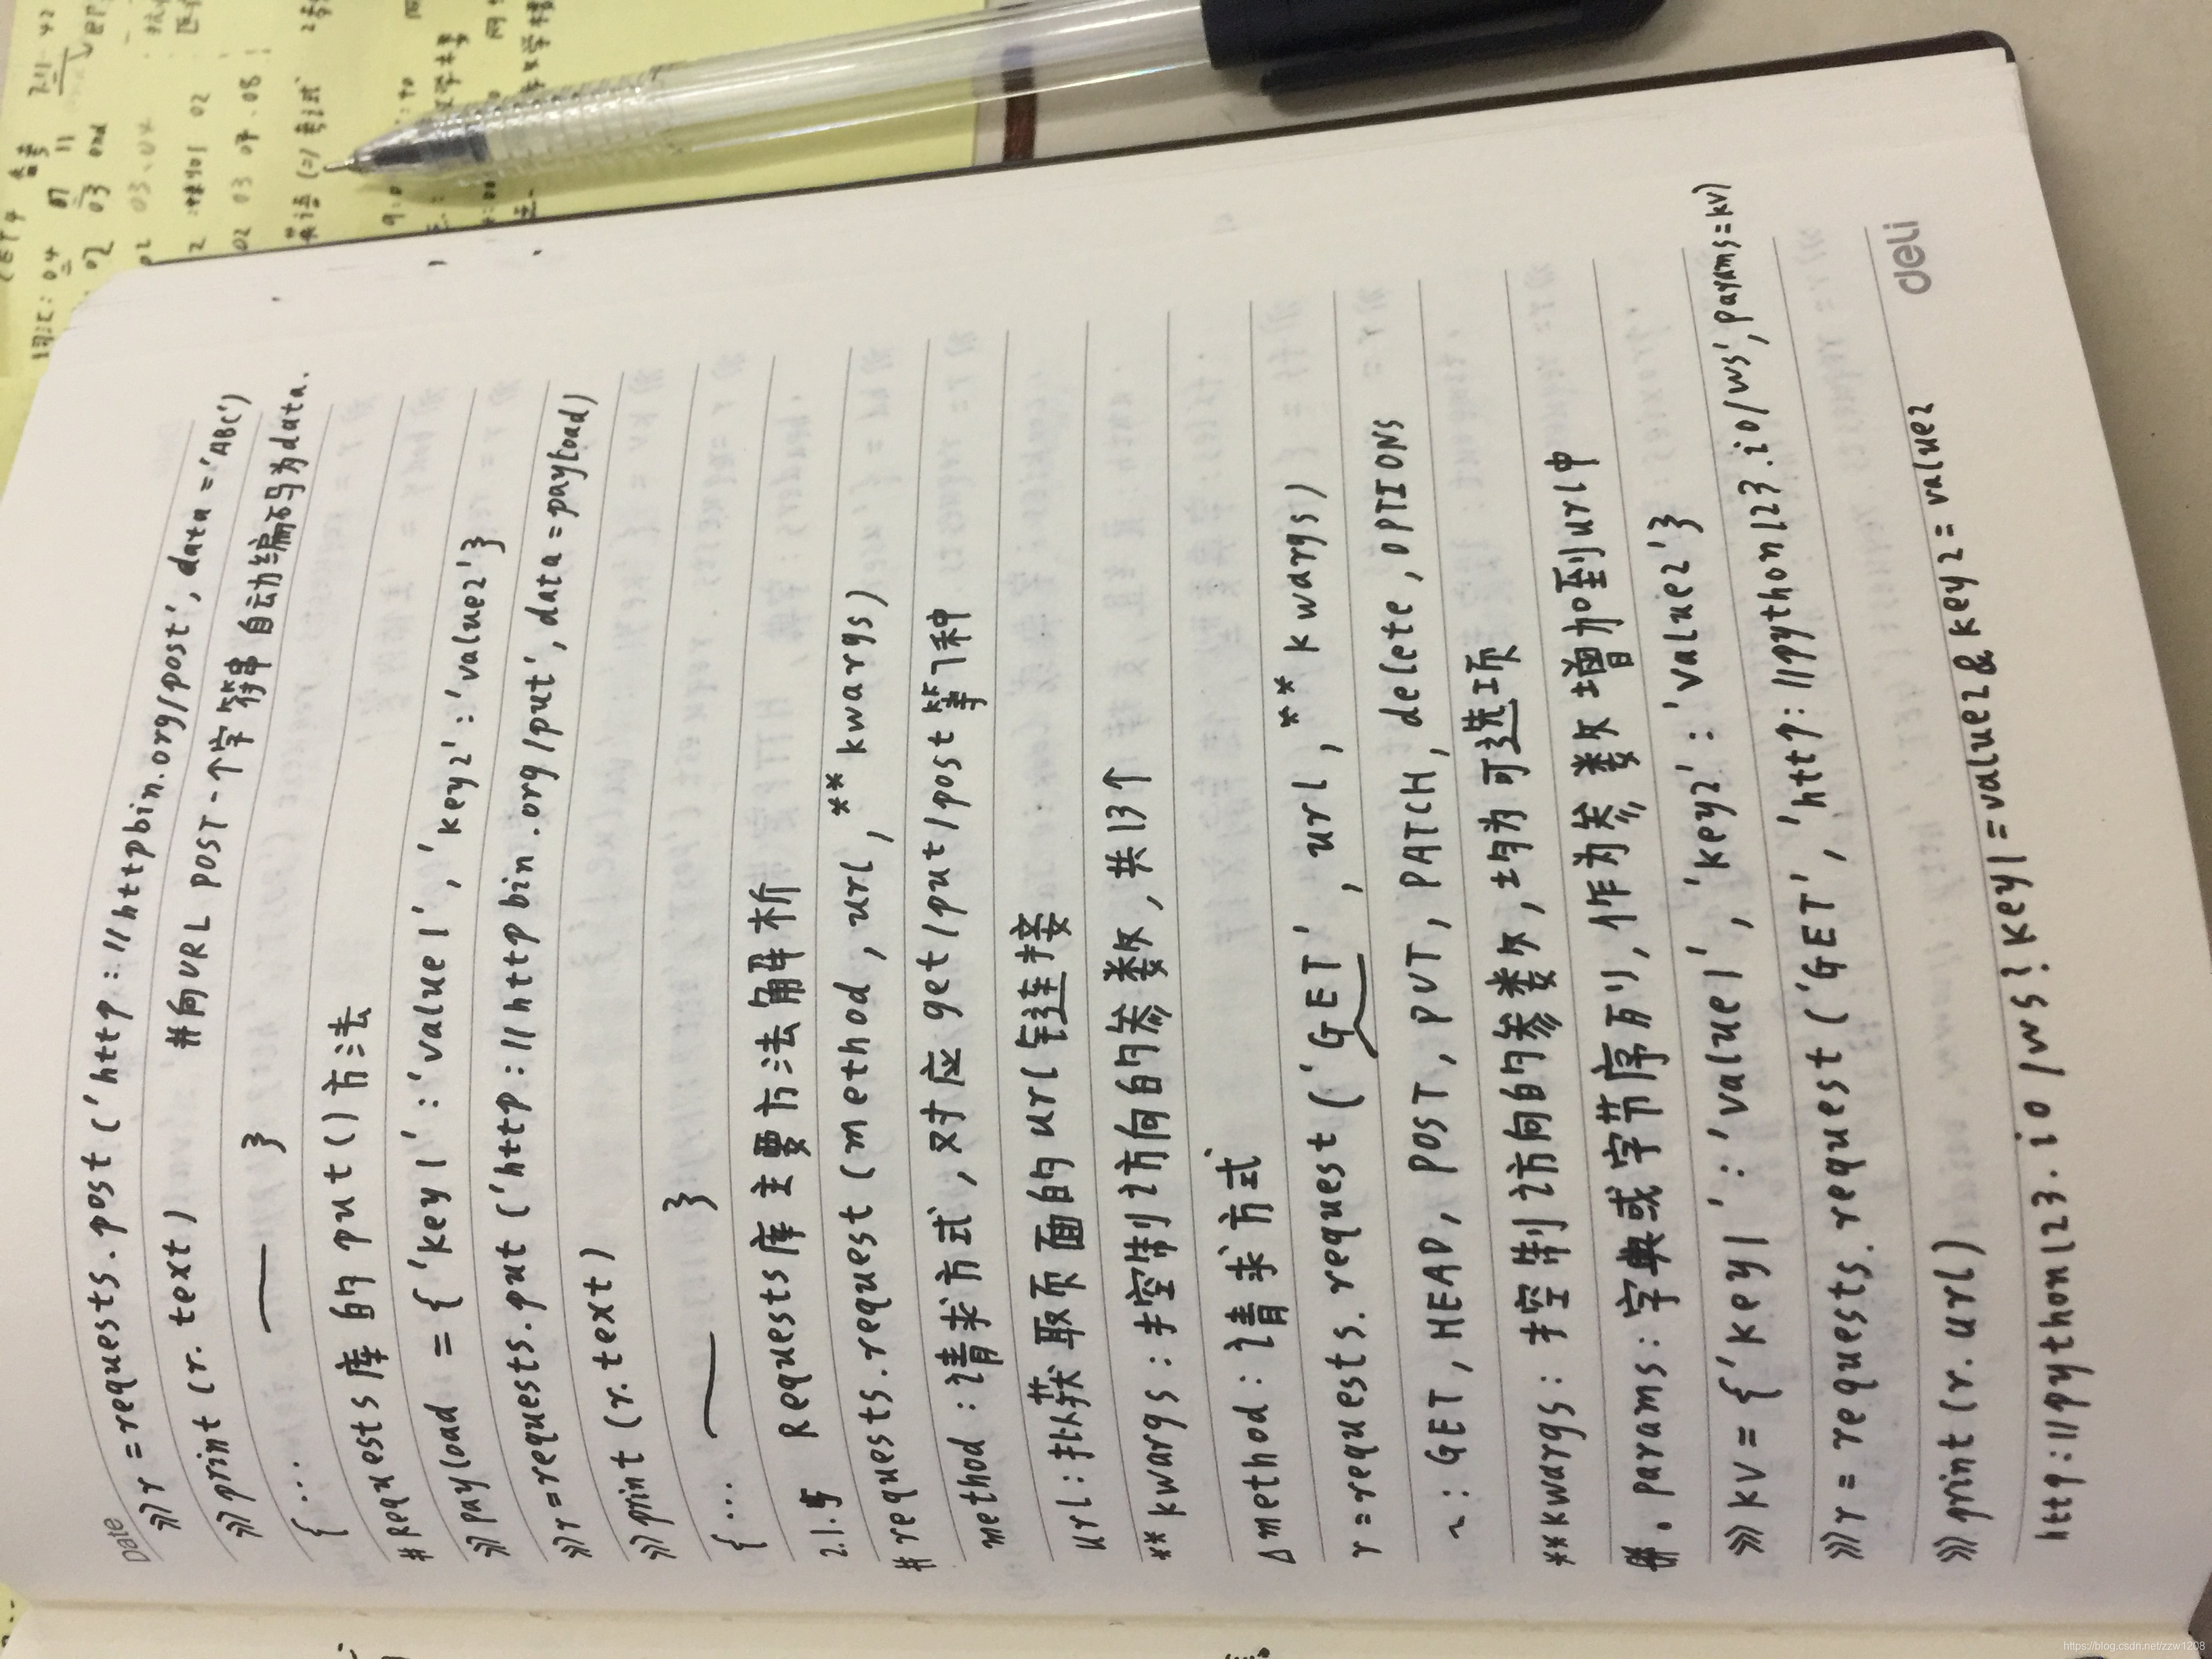 Date
>>> r = requests.post('http://httpbin.org/post', data='ABC')
>>> print(r.text) #向URL POST一个字符串 自动编码为data.
{... — }
#Requests库的put()方法
>>> payload = {'key1':'value1', 'key2':'value2'}
>>> r = requests.put('http://httpbin.org/put', data=payload)
>>> print(r.text)
{... — }
2.1.5 Requests库主要方法解析
# requests.request(method, url, **kwargs)
method:请求方式,对应get/put/post等7种
url:拟获取页面的url链连接
**kwargs:控制访问的参数,共13个
△method:请求方式
r = requests.request('GET', url, **kwargs)
~: GET, HEAD, POST, PUT, PATCH, delete, OPTIONS
**kwargs:控制访问的参数,均为可选项
#. params:字典或字节序列,作为参数增加到url中
>>> kv = {'key1':'value1', 'key2':'value2'}
>>> r = requests.request('GET', 'http://python123.io/ws', params=kv)
>>> print(r.url)
http://python123.io/ws?key1=value2&key2=value2
deli
https://blog.csdn.net/zzw1208